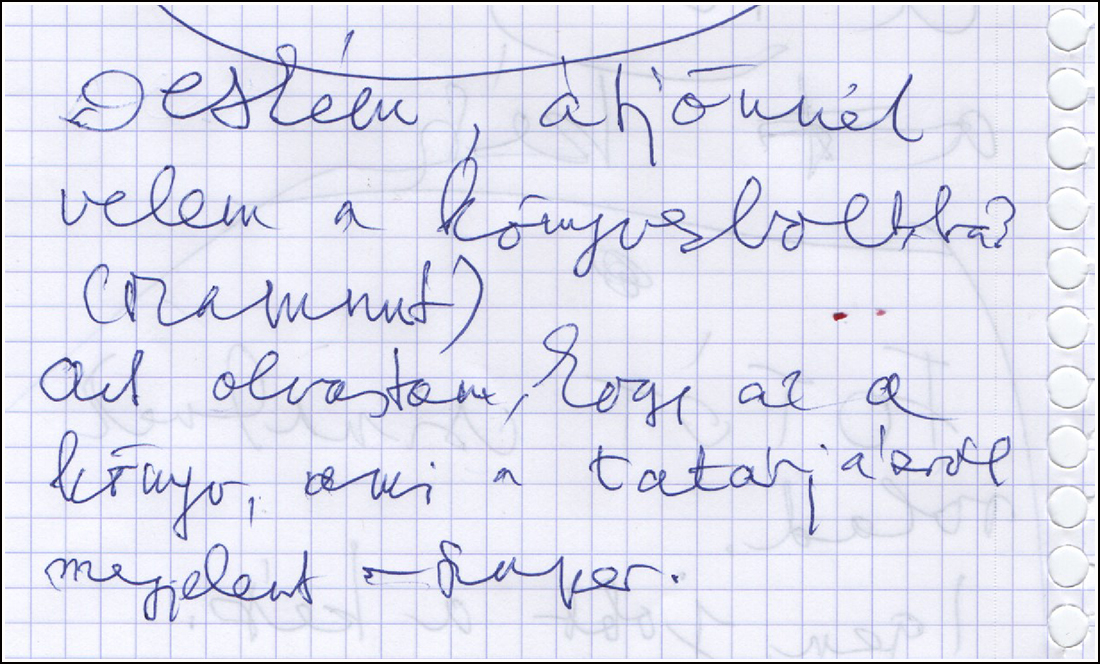 Desszém, átjönnél
velem a könyvesboltba?
(Ramunt)
Azt olvastam, hogy az a
könyv, ami a tatárjárásról
megjelent – szuper.